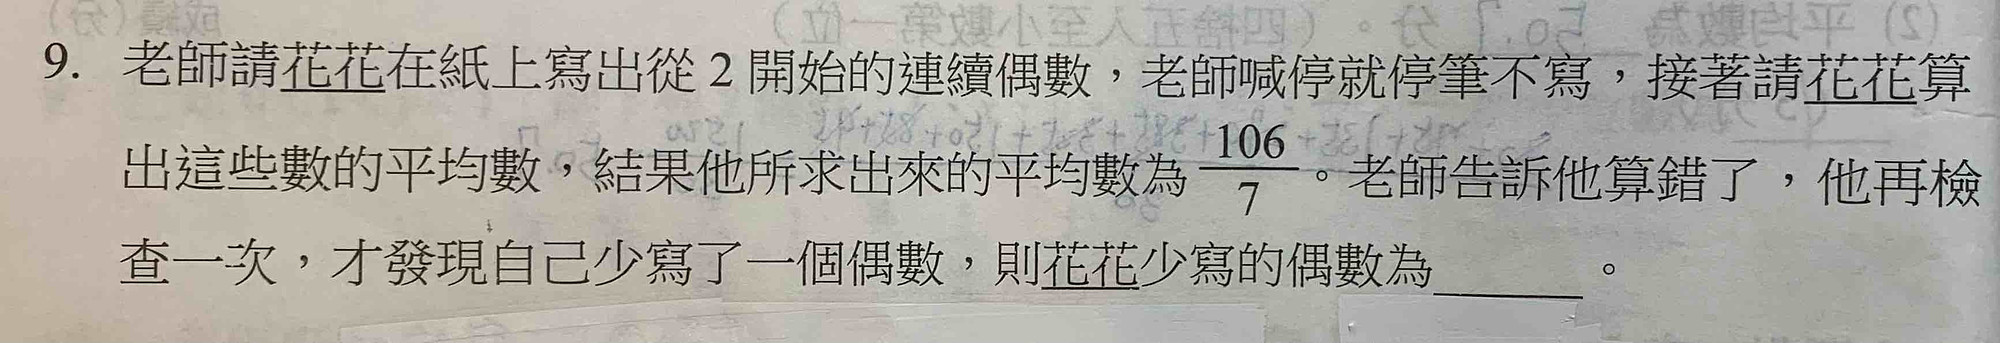 9. 老師請花花在紙上寫出從 2 開始的連續偶數，老師喊停就停筆不寫，接著請花花算
出這些數的平均數，結果他所求出來的平均數為 106/7。老師告訴他算錯了，他再檢
查一次，才發現自己少寫了一個偶數，則花花少寫的偶數為______。